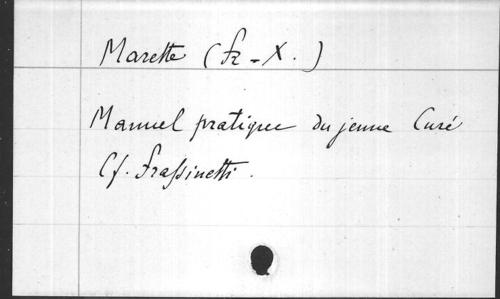 Marette (Fr-X.)
Manuel pratique du jeune Curé
Cf. Frassinetti.